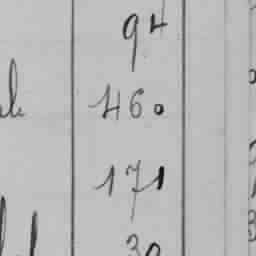 94
460
171
30